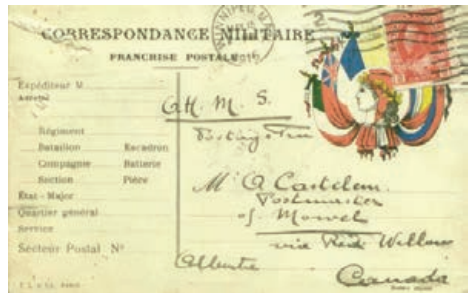 WINNIPEG, MA
1916
CORRESPONDANCE MILITAIRE
FRANCHISE POSTALE
Expéditeur M
Adresse
Régiment
Bataillon Escadron
Compagnie Batterie
Section Pièce
État-Major
Quartier général
Service
Secteur Postal N°
O.H.M.S.
Mr O. Castelem
Postmaster
of Mowet
via Red Willow
Alberta
Canada